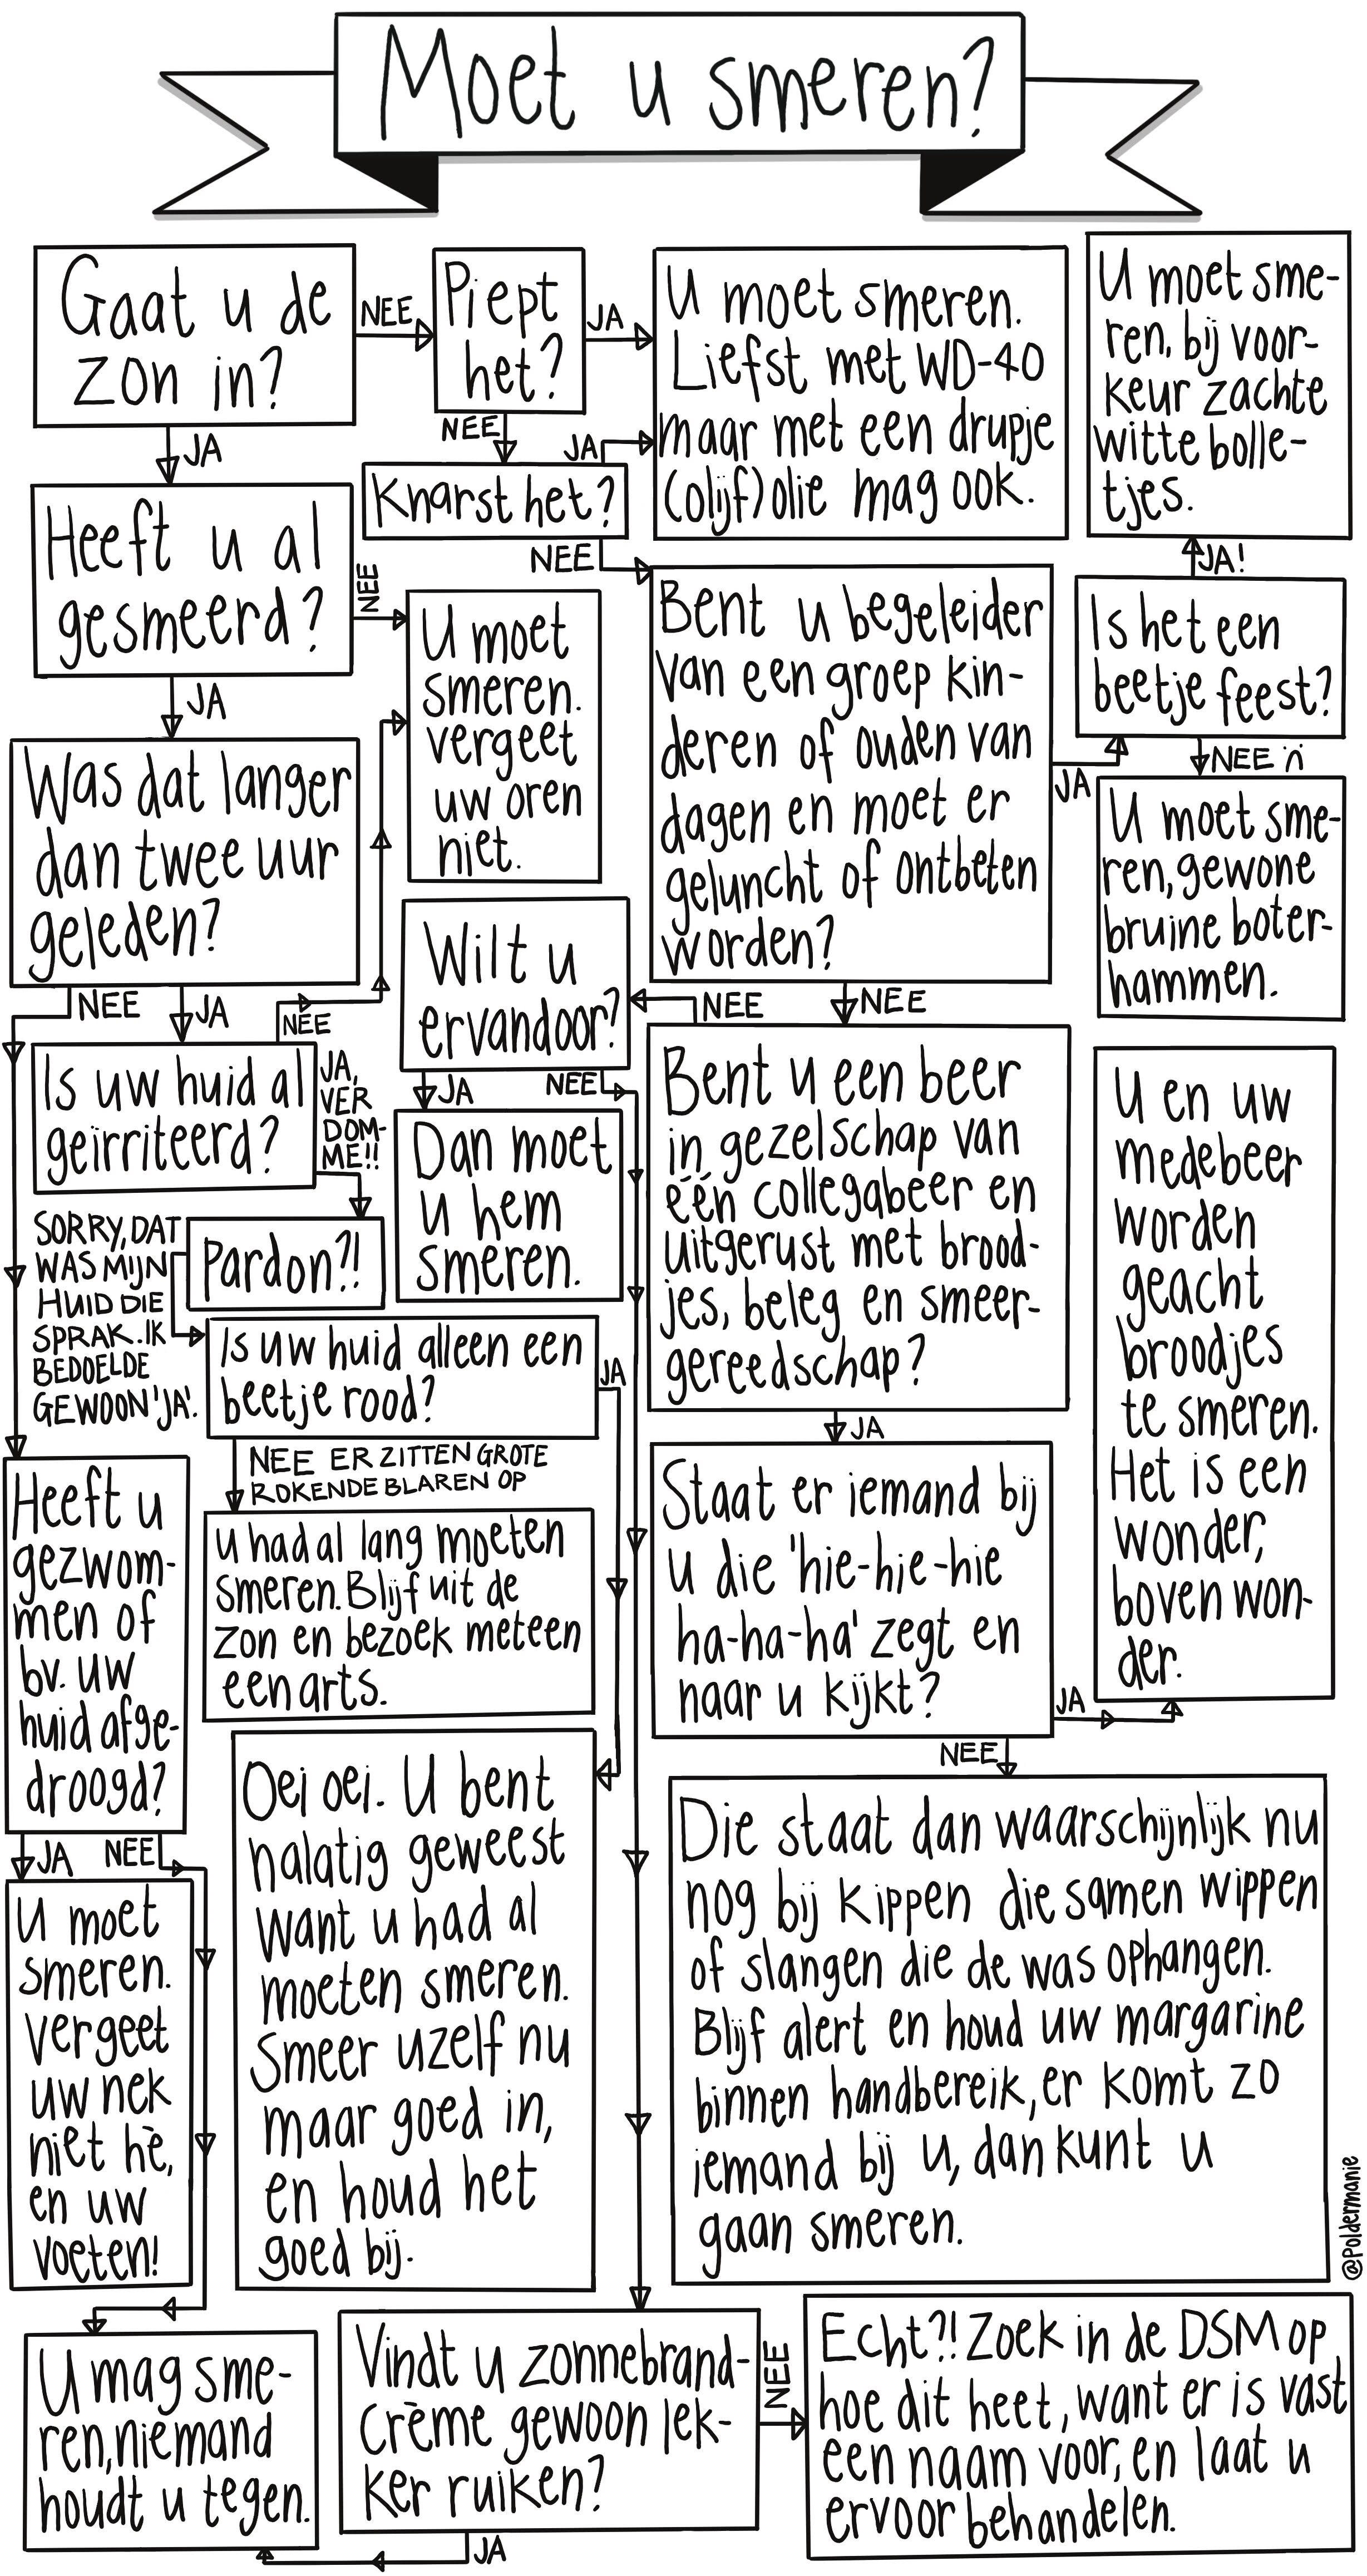 Moet u smeren?
Gaat u de
zon in?
NEE
JA
Piept
het?
JA
NEE
U moet smeren.
Liefst met WD-40
maar met een drupje
(olijf)olie mag ook.
U moet sme-
ren, bij voor-
keur zachte
witte bolle-
tjes.
Knarst het?
JA
NEE
Heeft u al
gesmeerd?
NEE
JA
U moet
smeren.
vergeet
uw oren
niet.
Bent u begeleider
van een groep kin-
deren of ouden van
dagen en moet er
geluncht of ontbeten
worden?
JA
NEE
Is het een
beetje feest?
JA!
NEE'n
U moet sme-
ren, gewone
bruine boter-
hammen.
Was dat langer
dan twee uur
geleden?
NEE
JA
Wilt u
ervandoor?
JA
NEE
Dan moet
u hem
smeren.
Is uw huid al
geirriteerd?
NEE
JA,
VER
DOM-
ME!!
Pardon?!
SORRY, DAT
WAS MIJN
HUID DIE
SPRAK. IK
BEDOELDE
GEWOON 'JA'.
Is uw huid alleen een
beetje rood?
JA
NEE ER ZITTEN GROTE
ROKENDE BLAREN OP
u had al lang moeten
smeren. Blijf uit de
zon en bezoek meteen
een arts.
Oei oei. U bent
nalatig geweest
want u had al
moeten smeren.
Smeer uzelf nu
maar goed in,
en houd het
goed bij.
NEE
Bent u een beer
in gezelschap van
één collegabeer en
uitgerust met brood-
jes, beleg en smeer-
gereedschap?
JA
Staat er iemand bij
u die 'hie-hie-hie
ha-ha-ha' zegt en
naar u kijkt?
JA
NEE
U en uw
medebeer
worden
geacht
broodjes
te smeren.
Het is een
wonder,
boven won-
der.
Die staat dan waarschijnlijk nu
nog bij kippen die samen wippen
of slangen die de was ophangen.
Blijf alert en houd uw margarine
binnen handbereik, er komt zo
iemand bij u, dan kunt u
gaan smeren.
Heeft u
gezwom-
men of
bv. uw
huid afge-
droogd?
JA
NEE
U moet
smeren.
vergeet
uw nek
niet hè,
en uw
voeten!
U mag sme-
ren, niemand
houdt u tegen.
Vindt u zonnebrand-
crème gewoon lek-
ker ruiken?
JA
NEE
Echt?! Zoek in de DSM op
hoe dit heet, want er is vast
een naam voor, en laat u
ervoor behandelen.
@Poldermanie